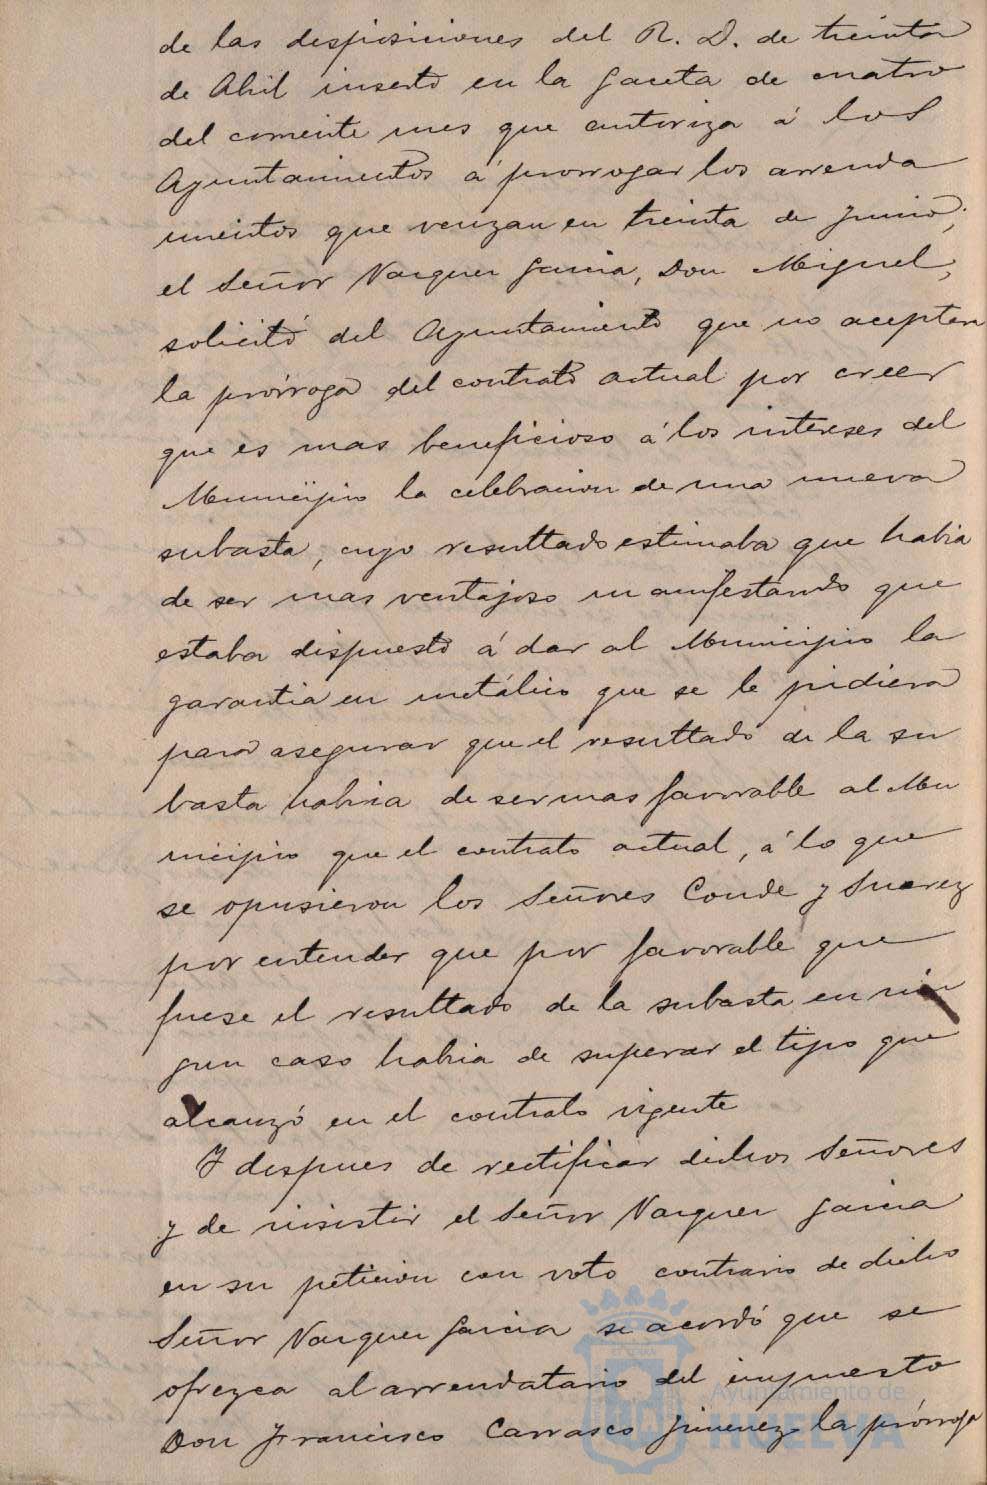 de las desposiciones del R. D. de treinta
de Abril inserto en la Gaceta de cuatro
del corriente mes que autoriza á los
Ayuntamientos á prorrogar los arrenda
mientos que venzan en treinta de Junio;
el Señor Vazquez Garcia, Don Miguel,
solicitó del Ayuntamiento que no aceptara
la prórroga del contrato actual por creer
que es mas beneficioso á los intereses del
Municipio la celebracion de una nueva
subasta, cuyo resultado estimaba que habia
de ser mas ventajoso manifestando que
estaba dispuesto á dar al Municipio la
garantia en metálico que se le pidiera
para asegurar que el resultado de la su
basta habria de ser mas favorable al Mu
nicipio que el contrato actual, á lo que
se opusieron los Señores Conde y Suarez
por entender que por favorable que
fuese el resultado de la subasta en nin
gun caso habia de superar el tipo que
alcanzó en el contrato vigente
Y despues de rectificar dichos Señores
y de insistir el Señor Vazquez Garcia
en su peticion con voto contrario de dicho
Señor Vazquez Garcia se acordó que se
ofrezca al arrendatario del impuesto
Don Francisco Carrasco Jimenez la prórroga
Ayuntamiento de
HUELVA